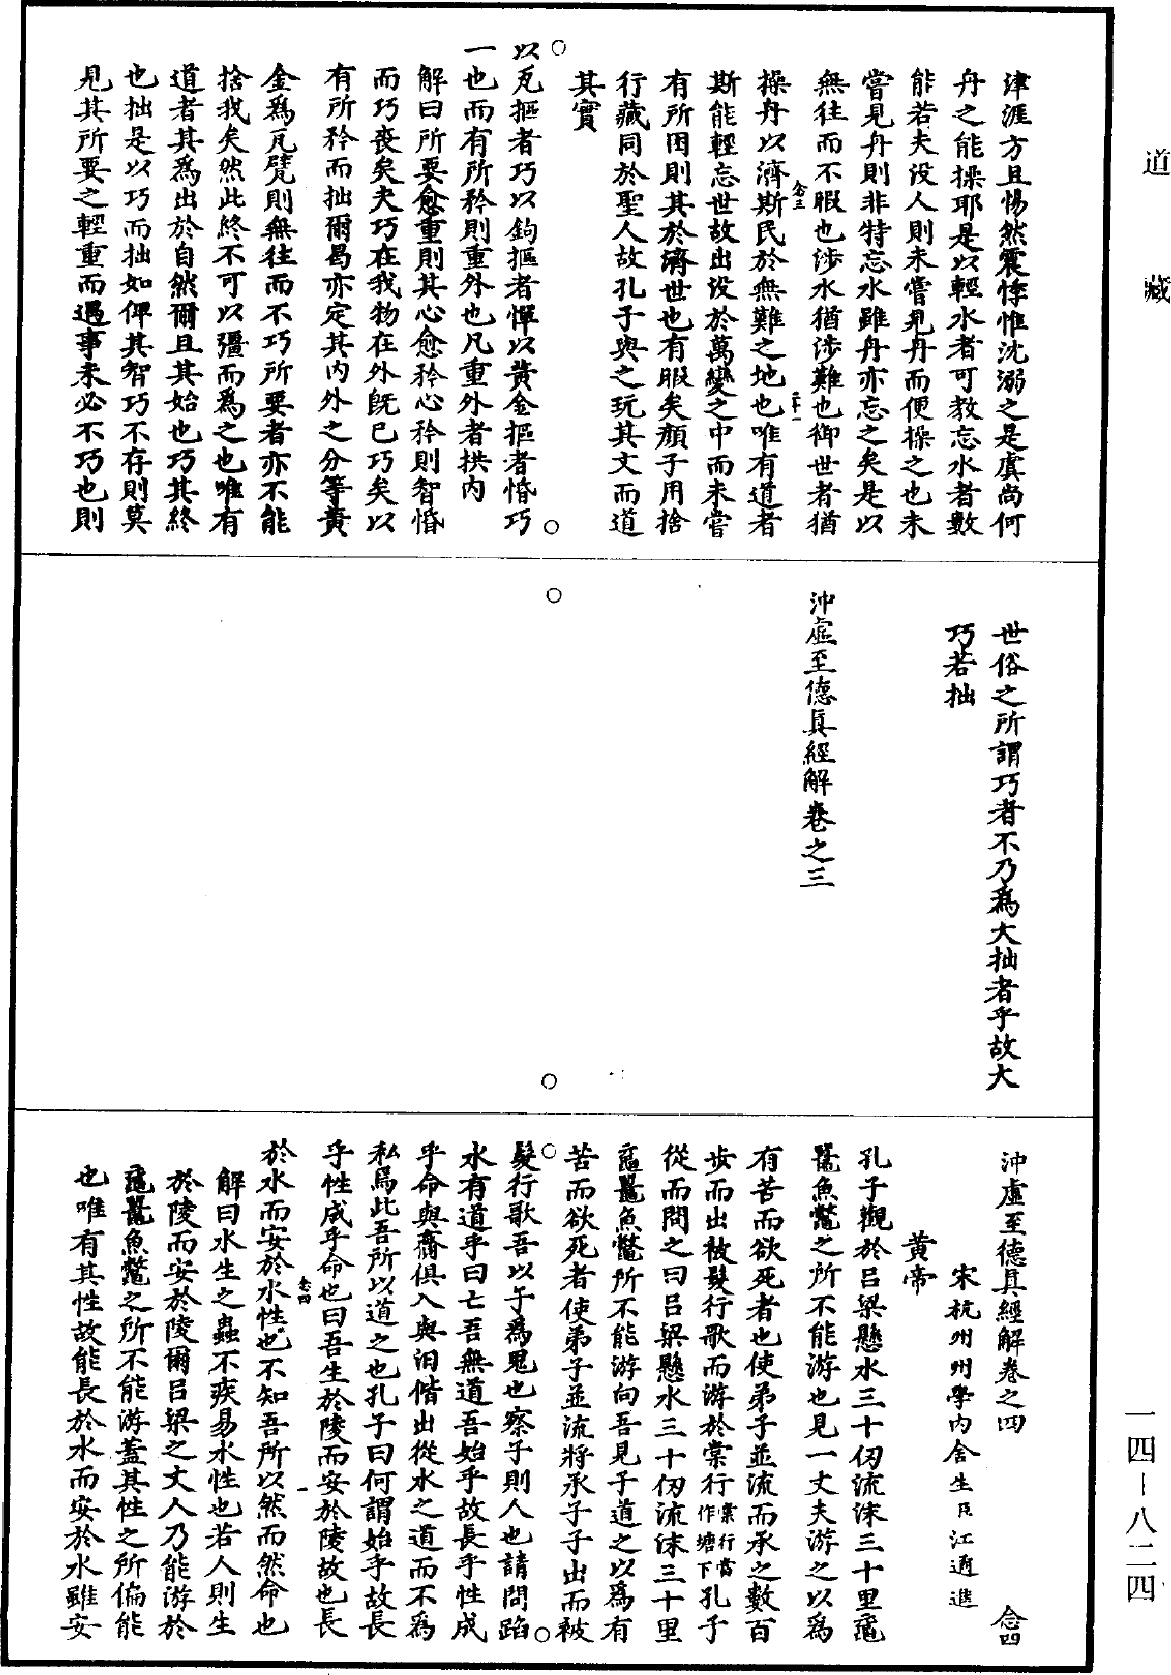 道藏
津涯方且惕然震悸惟沈溺之是虞尚何
舟之能操耶是以輕水者可教忘水者數
能若夫没人則未嘗見舟而便操之也未
嘗見舟則非特忘水雖舟亦忘之矣是以
無往而不暇也涉水猶涉難也御世者猶
操舟以濟斯民於無難之地也唯有道者
斯能輕忘世故出没於萬變之中而未嘗
有所困則其於濟世也有暇矣顏子用捨
行藏同於聖人故孔子與之玩其文而道
其實
以瓦摳者巧以鉤摳者憚以黃金摳者惛巧
一也而有所矜則重外也凡重外者拱内
解曰所要愈重則其心愈矜心矜則智惛
而巧喪矣夫巧在我物在外既已巧矣以
有所矜而拙爾曷亦定其内外之分等黃
金爲瓦甓則無往而不巧所要者亦不能
捨我矣然此終不可以彊而爲之也唯有
道者其爲出於自然爾且其始也巧其終
也拙是以巧而拙如俾其智巧不存則莫
見其所要之輕重而遇事未必不巧也則
世俗之所謂巧者不乃爲大拙者乎故大
巧若拙
沖虛至德真經解卷之三
沖虛至德真經解卷之四 念四
宋杭州州學内舍生臣江遹進
黃帝
孔子觀於吕梁懸水三十仞流沫三十里黿
鼉魚鼈之所不能游也見一丈夫游之以爲
有苦而欲死者也使弟子並流而承之數百
步而出被髮行歌而游於棠行棠行當作塘下孔子
從而問之曰吕梁懸水三十仞流沫三十里
黿鼉魚鼈所不能游向吾見子道之以爲有
苦而欲死者使弟子並流將承子子出而被
髮行歌吾以子爲鬼也察子則人也請問蹈
水有道乎曰亡吾無道吾始乎故長乎性成
乎命與齎俱入與汩偕出從水之道而不爲
私焉此吾所以道之也孔子曰何謂始乎故長
乎性成乎命也曰吾生於陵而安於陵故也長
於水而安於水性也不知吾所以然而然命也
解曰水生之蟲不疾易水性也若人則生
於陵而安於陵爾吕梁之丈人乃能游於
黿鼉魚鼈之所不能游蓋其性之所偏能
也唯有其性故能長於水而安於水雖安
一四-八二四